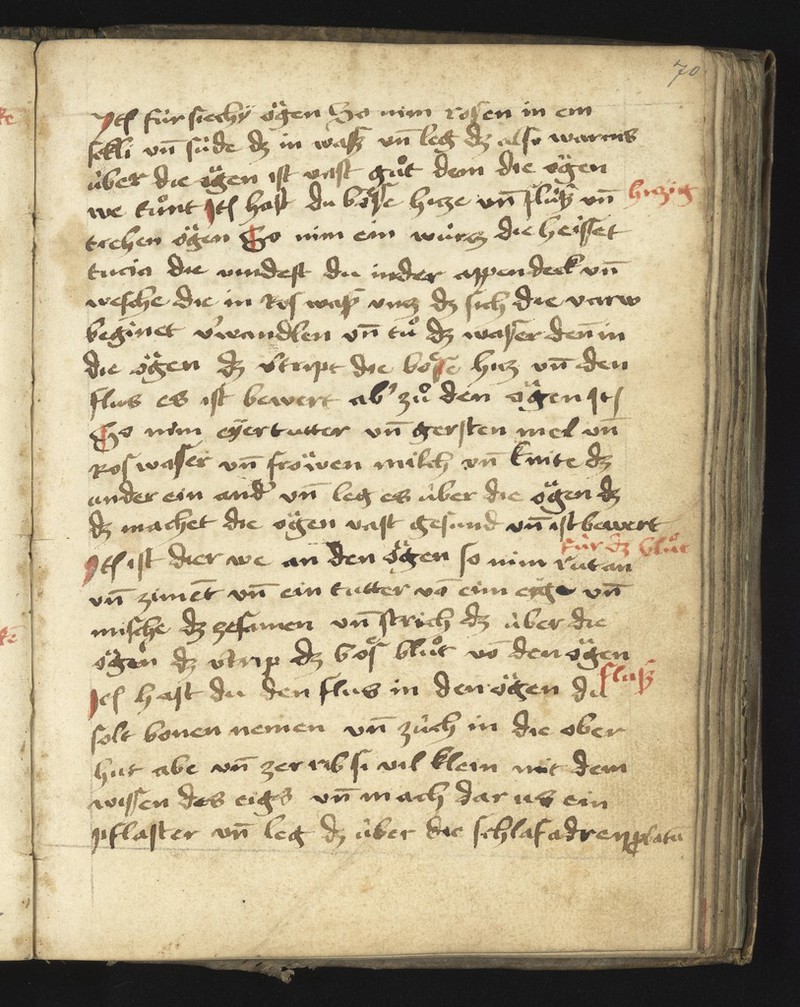 70
Itē für siechy ögen So nim rosen in ein
sekli vn̄ süde dz in wasz vn̄ leg dz also warms
über die ögen ist vast guͦt dem die ögen
we tuͦnt Itē hast du böse hize vn̄ flüsz vn̄ hizig
trehen ögen So nim ein wurz die heisset
tucia die vindest du in der appendeck vn̄
wesche die in Ros wasz vnz dz sich die varw
beginet v'wandlen vn̄ tuͦ dz waser den in
die ögen dz v'tript die böse hiz vn̄ den
flus es ist bewert ab' zuͦ den ögen Itē
So nim eyertutter vn̄ gersten mel vn̄
Ros waser vn̄ fröwen milch vn̄ knite dz
ander ein and' vn̄ leg es über die ögen dz
dz machet die ögen vast gesund vn̄ ist bewert
für dz bluͦt
Itē ist dier we an den ögen so nim rutan
vn̄ zimēt vn̄ ein tutter vō eim eige vn̄
mische dz zesamen vn̄ strich dz über die
ögen dz v'trip dz bös bluͦt vō den ögen
flusz
Itē hast du den flus in den ögen du
solt bonen nemen vn̄ züch in die ober
hut abe vn̄ zer rib si vil klein mit dem
wissen des eigs vn̄ mach dar us ein
pflaster vn̄ leg dz über die schlafadren pbatū